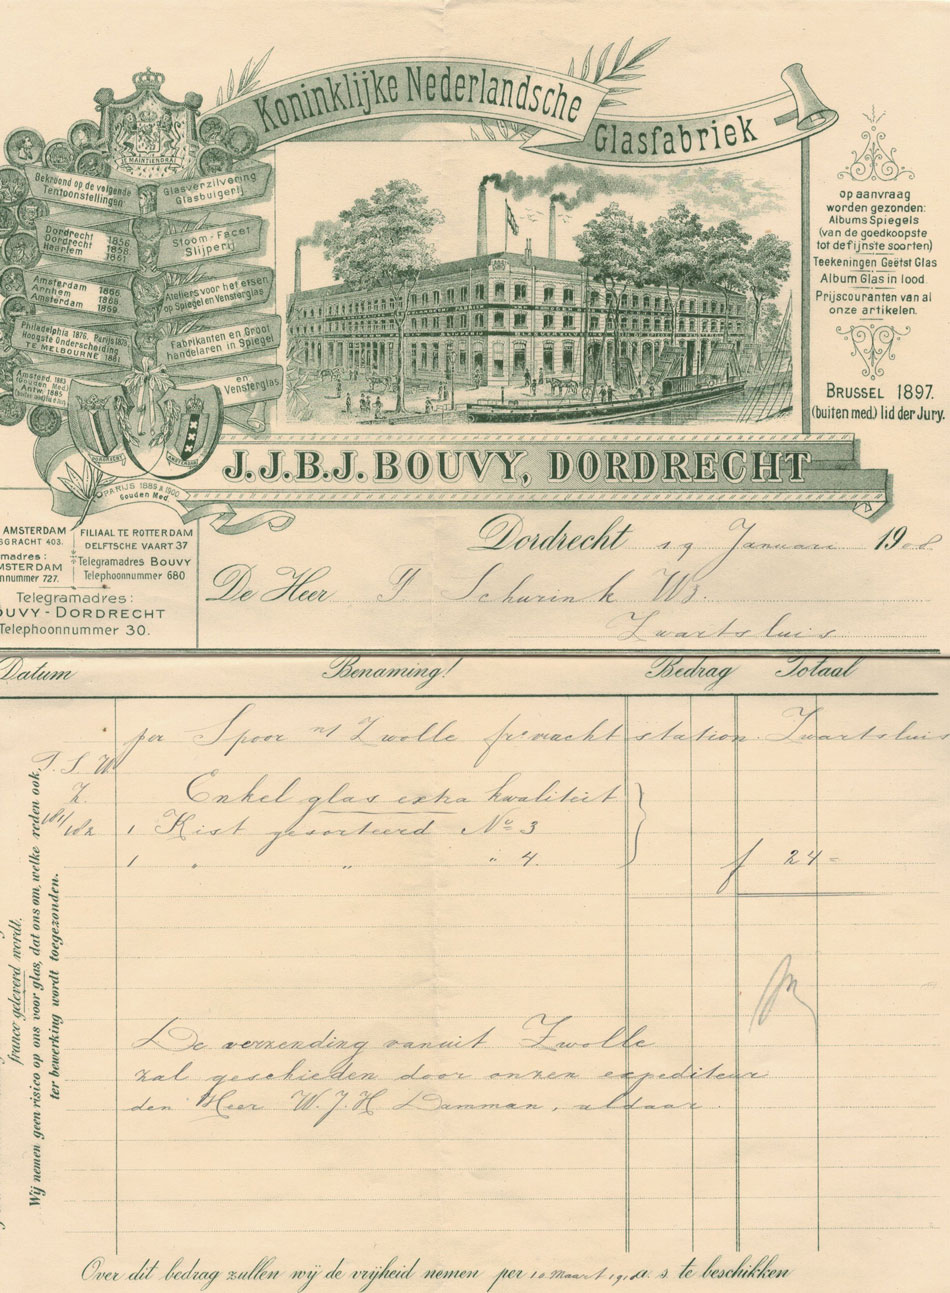 Koninklijke Nederlandsche
Glasfabriek
JE MAINTIENDRAI
Bekroond op de volgende
Tentoonstellingen
Glasverzilvering
Glasbuigerij
Dordrecht 1856
Dordrecht 1858
Haarlem 1861
Stoom-Facet
Slijperij
Amsterdam 1866
Arnhem 1868
Amsterdam 1869
Ateliers voor het etsen
op Spiegel en Vensterglas
Philadelphia 1876. Parijs 1878
Hoogste Onderscheiding
TE MELBOURNE 1881
Fabrikanten en Groot
handelaren in Spiegel
Amsterd. 1883
(Gouden Med.)
Antw. 1885
en
Vensterglas
DORDRECHT
AMSTERDAM
PARIJS 1889 & 1900
Gouden Med
op aanvraag
worden gezonden:
Albums Spiegels
(van de goedkoopste
tot de fijnste soorten)
Teekeningen Geëtst Glas
Album Glas in lood.
Prijscouranten van al
onze artikelen.
BRUSSEL 1897.
(buiten med.) lid der Jury.
J.J.B.J. BOUVY, DORDRECHT
AMSTERDAM
SGRACHT 403.
madres:
MSTERDAM
nnummer 727.
FILIAAL TE ROTTERDAM
DELFTSCHE VAART 37
Telegramadres BOUVY
Telephoonnummer 680
Telegramadres:
OUVY-DORDRECHT
Telephoonnummer 30.
Dordrecht 19 Januari 1908.
De Heer P Schurink Wz.
Zwartsluis
Datum Benaming! Bedrag Totaal
per Spoor nr Zwolle fr. vracht station Zwartsluis
P. S. W
Z. Enkel glas extra kwaliteit
181/182 1 Kist gesorteerd No 3
1 " " " 4. f 24 =
De verzending vanuit Zwolle
zal geschieden door onzen expediteur
den Heer W. J. H Damman, aldaar.
franco geleverd wordt.
Wij nemen geen risico op ons voor glas, dat ons om, welke reden ook,
ter bewerking wordt toegezonden.
Over dit bedrag zullen wij de vrijheid nemen per 10 Maart 1908 a. s. te beschikken